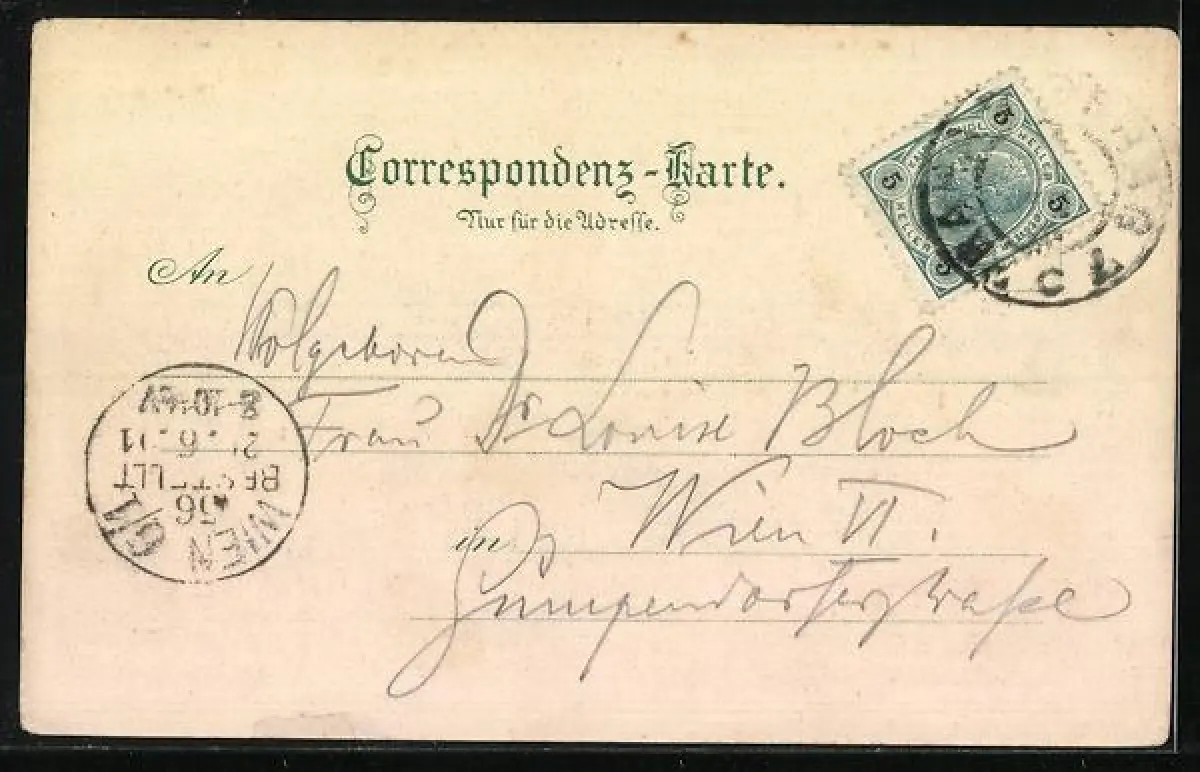 Correspondenz-Karte.
Nur für die Adresse.
An
Wolgeboren
Frau Dr Louise Bloch
in Wien VI.
Gumpendorferstrasse
5 HELLER 5
WIEN 6/1
56
BESTELLT